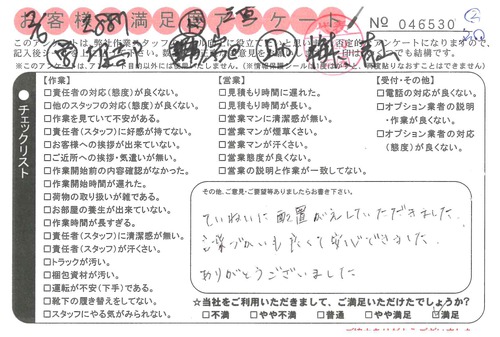 お客様満足度アンケート
No 046530
チェックリスト
【作業】
□責任者の対応(態度)が良くない。
□他のスタッフの対応(態度)が良くない。
□作業を見ていて不安がある。
□責任者(スタッフ)に好感が持てない。
□お客様への挨拶が出来ていない。
□ご近所への挨拶・気遣いが無い。
□作業開始前の内容確認がなかった。
□作業開始時間が遅れた。
□荷物の取り扱いが雑である。
□お部屋の養生が出来ていない。
□作業時間が長すぎる。
□責任者(スタッフ)に清潔感が無い。
□責任者(スタッフ)が汗くさい。
□トラックが汚い。
□梱包資材が汚い。
□運転が不安(下手)である。
□靴下の履き替えをしてない。
□スタッフにやる気がみられない。
【営業】
□見積もり時間に遅れた。
□見積もり時間が長い。
□営業マンに清潔感が無い。
□営業マンが煙草くさい。
□営業マンが汗くさい。
□営業態度が良くない。
□営業の説明と作業が一致してない。
【受付・その他】
□電話の対応が良くない。
□オプション業者の説明
・作業が良くない。
□オプション業者の対応
(態度)が良くない。
その他、ご意見・ご要望等ありましたらお書き下さい。
ていねいに配置がえしていただきました。
言葉づかいも良くて安心できました。
ありがとうございました
☆当社をご利用いただきまして、ご満足いただけたでしょうか?
□不満 □やや不満 □普通 □やや満足 □満足